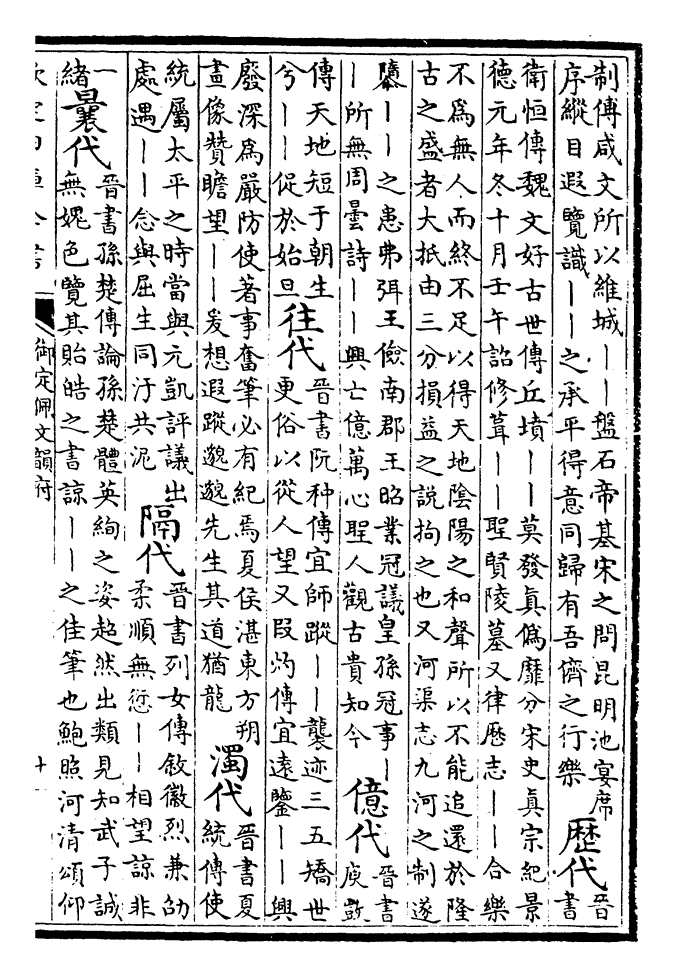 制傳咸文所以維城——盤石帝基宋之問昆明池宴席
序縱目遐覽識——之承平得意同歸有吾儕之行樂
歷代
晉書
衛恒傳魏文好古世傳丘墳——莫發真偽靡分宋史真宗紀景
德元年冬十月壬午詔修葺——聖賢陵墓又律歷志——合樂
不為無人而終不足以得天地陰陽之和聲所以不能追還於隆
古之盛者大抵由三分損益之說拘之也又河渠志九河之制遂
隳——之患弗弭王儉南郡王昭業冠議皇孫冠事—
—所無周曇詩——興亡億萬心聖人觀古貴知今
億代
晉書
庾敳
傳天地短于朝生
兮——促於始旦
往代
晉書阮种傳宜師蹤——襲迹三五矯世
更俗以從人望又段灼傳宜遠鑒——興
廢深為嚴防使著事奮筆必有紀焉夏侯湛東方朔
畫像贊瞻望——爰想遐蹤邈邈先生其道猶龍
濁代
晉書夏
統傳使
統屬太平之時當與元凱評議出
處遇——念與屈生同汙共泥
隔代
晉書列女傳敘徽烈兼劭
柔順無愆——相望諒非
一
緒
曩代
晉書孫楚傳論孫楚體英絢之姿超然出類見知武子誠
無媿色覽其貽皓之書諒——之佳筆也鮑照河清頌仰
欽定四庫全書
御定佩文韻府